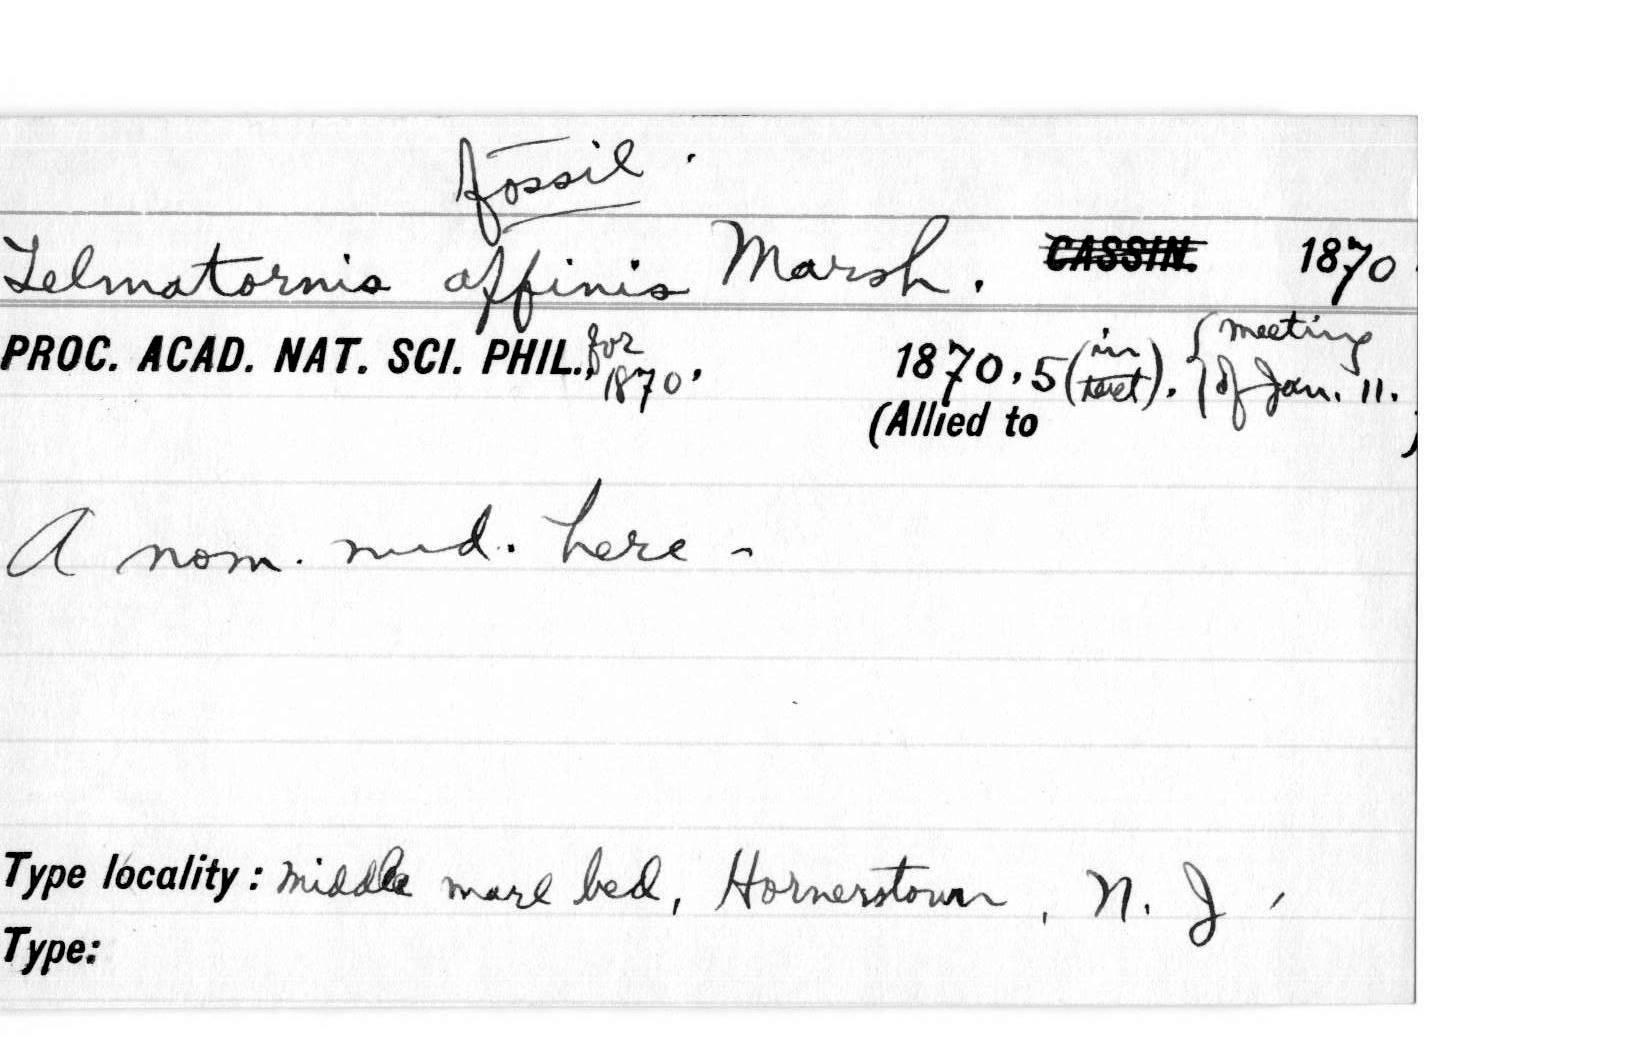 fossil.
Telmatornis affinis Marsh. CASSIN. 1870.
PROC. ACAD. NAT. SCI. PHIL., for 1870, 1870, 5 (in text). { meeting of Jan. 11.
(Allied to )
A nom. nud. here -
Type locality: Middle marl bed, Hornerstown, N. J.
Type: